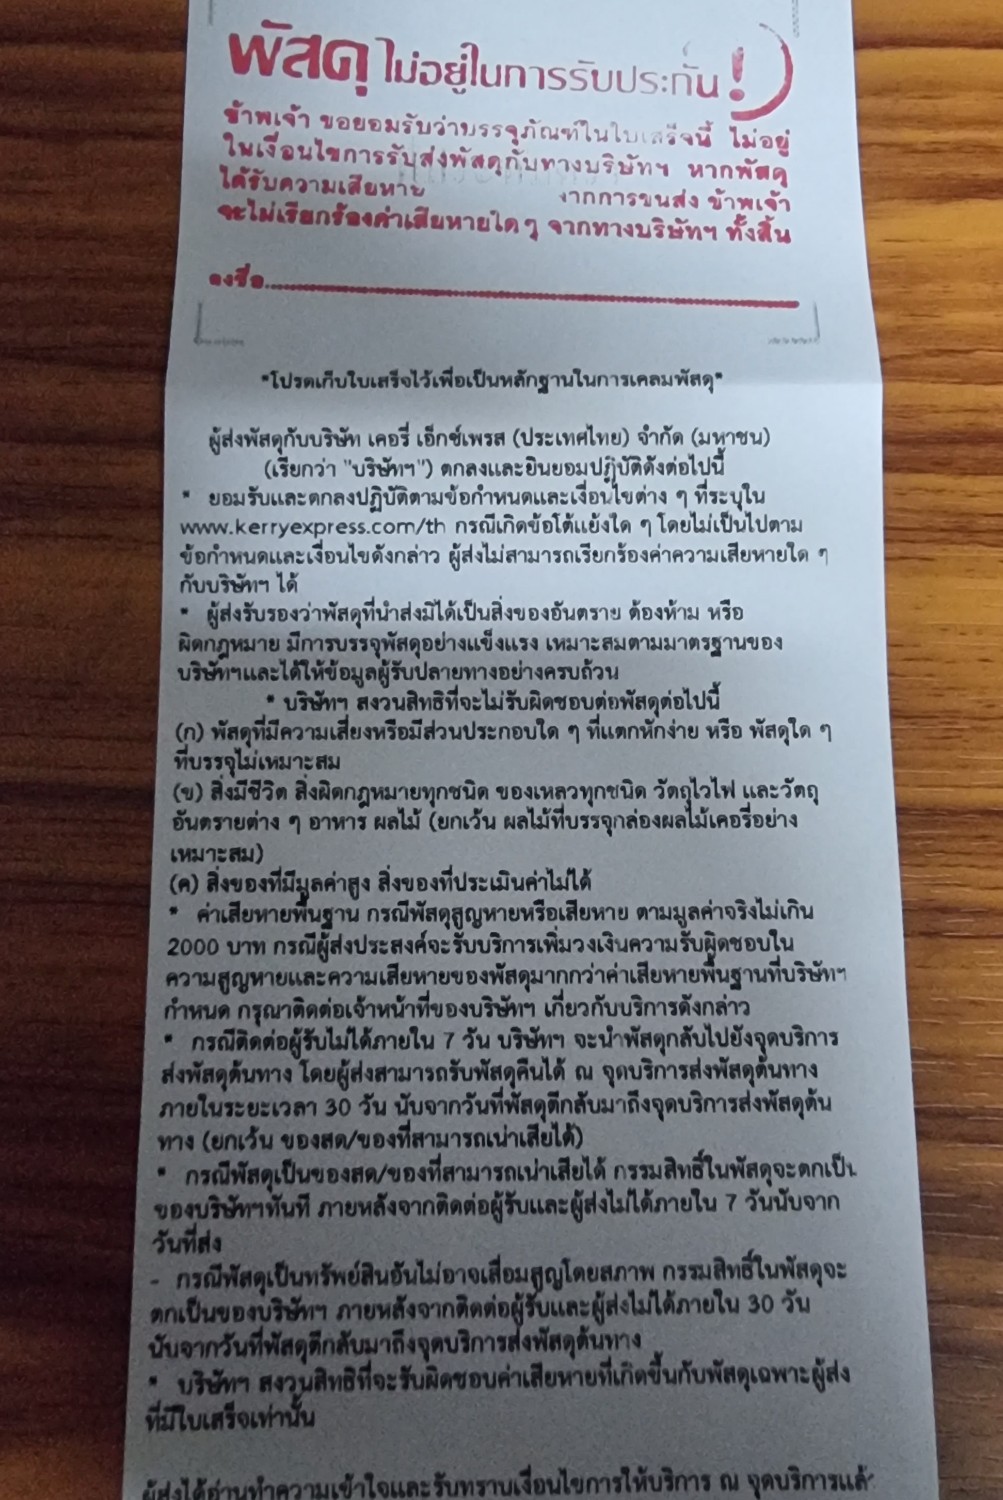 พัสดุ ไม่อยู่ในการรับประกัน !
ข้าพเจ้า ขอยอมรับว่าบรรจุภัณฑ์ในใบเสร็จนี้ ไม่อยู่
ในเงื่อนไขการรับส่งพัสดุกับทางบริษัทฯ หากพัสดุ
ได้รับความเสียหาย จากการขนส่ง ข้าพเจ้า
จะไม่เรียกร้องค่าเสียหายใด ๆ จากทางบริษัทฯ ทั้งสิ้น
ลงชื่อ..........................................................................
"โปรดเก็บใบเสร็จไว้เพื่อเป็นหลักฐานในการเคลมพัสดุ"
ผู้ส่งพัสดุกับบริษัท เคอรี่ เอ็กซ์เพรส (ประเทศไทย) จำกัด (มหาชน)
(เรียกว่า "บริษัทฯ") ตกลงและยินยอมปฏิบัติดังต่อไปนี้
* ยอมรับและตกลงปฏิบัติตามข้อกำหนดและเงื่อนไขต่าง ๆ ที่ระบุใน
www.kerryexpress.com/th กรณีเกิดข้อโต้แย้งใด ๆ โดยไม่เป็นไปตาม
ข้อกำหนดและเงื่อนไขดังกล่าว ผู้ส่งไม่สามารถเรียกร้องค่าความเสียหายใด ๆ
กับบริษัทฯ ได้
* ผู้ส่งรับรองว่าพัสดุที่นำส่งมิได้เป็นสิ่งของอันตราย ต้องห้าม หรือ
ผิดกฎหมาย มีการบรรจุพัสดุอย่างแข็งแรง เหมาะสมตามมาตรฐานของ
บริษัทฯและได้ให้ข้อมูลผู้รับปลายทางอย่างครบถ้วน
* บริษัทฯ สงวนสิทธิที่จะไม่รับผิดชอบต่อพัสดุต่อไปนี้
(ก) พัสดุที่มีความเสี่ยงหรือมีส่วนประกอบใด ๆ ที่แตกหักง่าย หรือ พัสดุใด ๆ
ที่บรรจุไม่เหมาะสม
(ข) สิ่งมีชีวิต สิ่งผิดกฎหมายทุกชนิด ของเหลวทุกชนิด วัตถุไวไฟ และวัตถุ
อันตรายต่าง ๆ อาหาร ผลไม้ (ยกเว้น ผลไม้ที่บรรจุกล่องผลไม้เคอรี่อย่าง
เหมาะสม)
(ค) สิ่งของที่มีมูลค่าสูง สิ่งของที่ประเมินค่าไม่ได้
* ค่าเสียหายพื้นฐาน กรณีพัสดุสูญหายหรือเสียหาย ตามมูลค่าจริงไม่เกิน
2000 บาท กรณีผู้ส่งประสงค์จะรับบริการเพิ่มวงเงินความรับผิดชอบใน
ความสูญหายและความเสียหายของพัสดุมากกว่าค่าเสียหายพื้นฐานที่บริษัทฯ
กำหนด กรุณาติดต่อเจ้าหน้าที่ของบริษัทฯ เกี่ยวกับบริการดังกล่าว
* กรณีติดต่อผู้รับไม่ได้ภายใน 7 วัน บริษัทฯ จะนำพัสดุกลับไปยังจุดบริการ
ส่งพัสดุต้นทาง โดยผู้ส่งสามารถรับพัสดุคืนได้ ณ จุดบริการส่งพัสดุต้นทาง
ภายในระยะเวลา 30 วัน นับจากวันที่พัสดุตีกลับมาถึงจุดบริการส่งพัสดุต้น
ทาง (ยกเว้น ของสด/ของที่สามารถเน่าเสียได้)
* กรณีพัสดุเป็นของสด/ของที่สามารถเน่าเสียได้ กรรมสิทธิ์ในพัสดุจะตกเป็น
ของบริษัทฯทันที ภายหลังจากติดต่อผู้รับและผู้ส่งไม่ได้ภายใน 7 วันนับจาก
วันที่ส่ง
- กรณีพัสดุเป็นทรัพย์สินอันไม่อาจเสื่อมสูญโดยสภาพ กรรมสิทธิ์ในพัสดุจะ
ตกเป็นของบริษัทฯ ภายหลังจากติดต่อผู้รับและผู้ส่งไม่ได้ภายใน 30 วัน
นับจากวันที่พัสดุตีกลับมาถึงจุดบริการส่งพัสดุต้นทาง
* บริษัทฯ สงวนสิทธิที่จะรับผิดชอบค่าเสียหายที่เกิดขึ้นกับพัสดุเฉพาะผู้ส่ง
ที่มีใบเสร็จเท่านั้น
ผู้ส่งได้อ่านทำความเข้าใจและรับทราบเงื่อนไขการให้บริการ ณ จุดบริการแล้ว